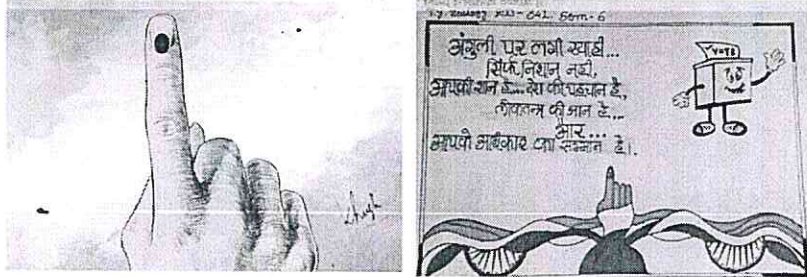 अंगुली पर लगी स्याही...
सिर्फ निशान नहीं,
आपकी शान है... देश की पहचान है,
लोकतन्त्र की जान है...
और...
आपके अधिकार का सम्मान है।
VOTE